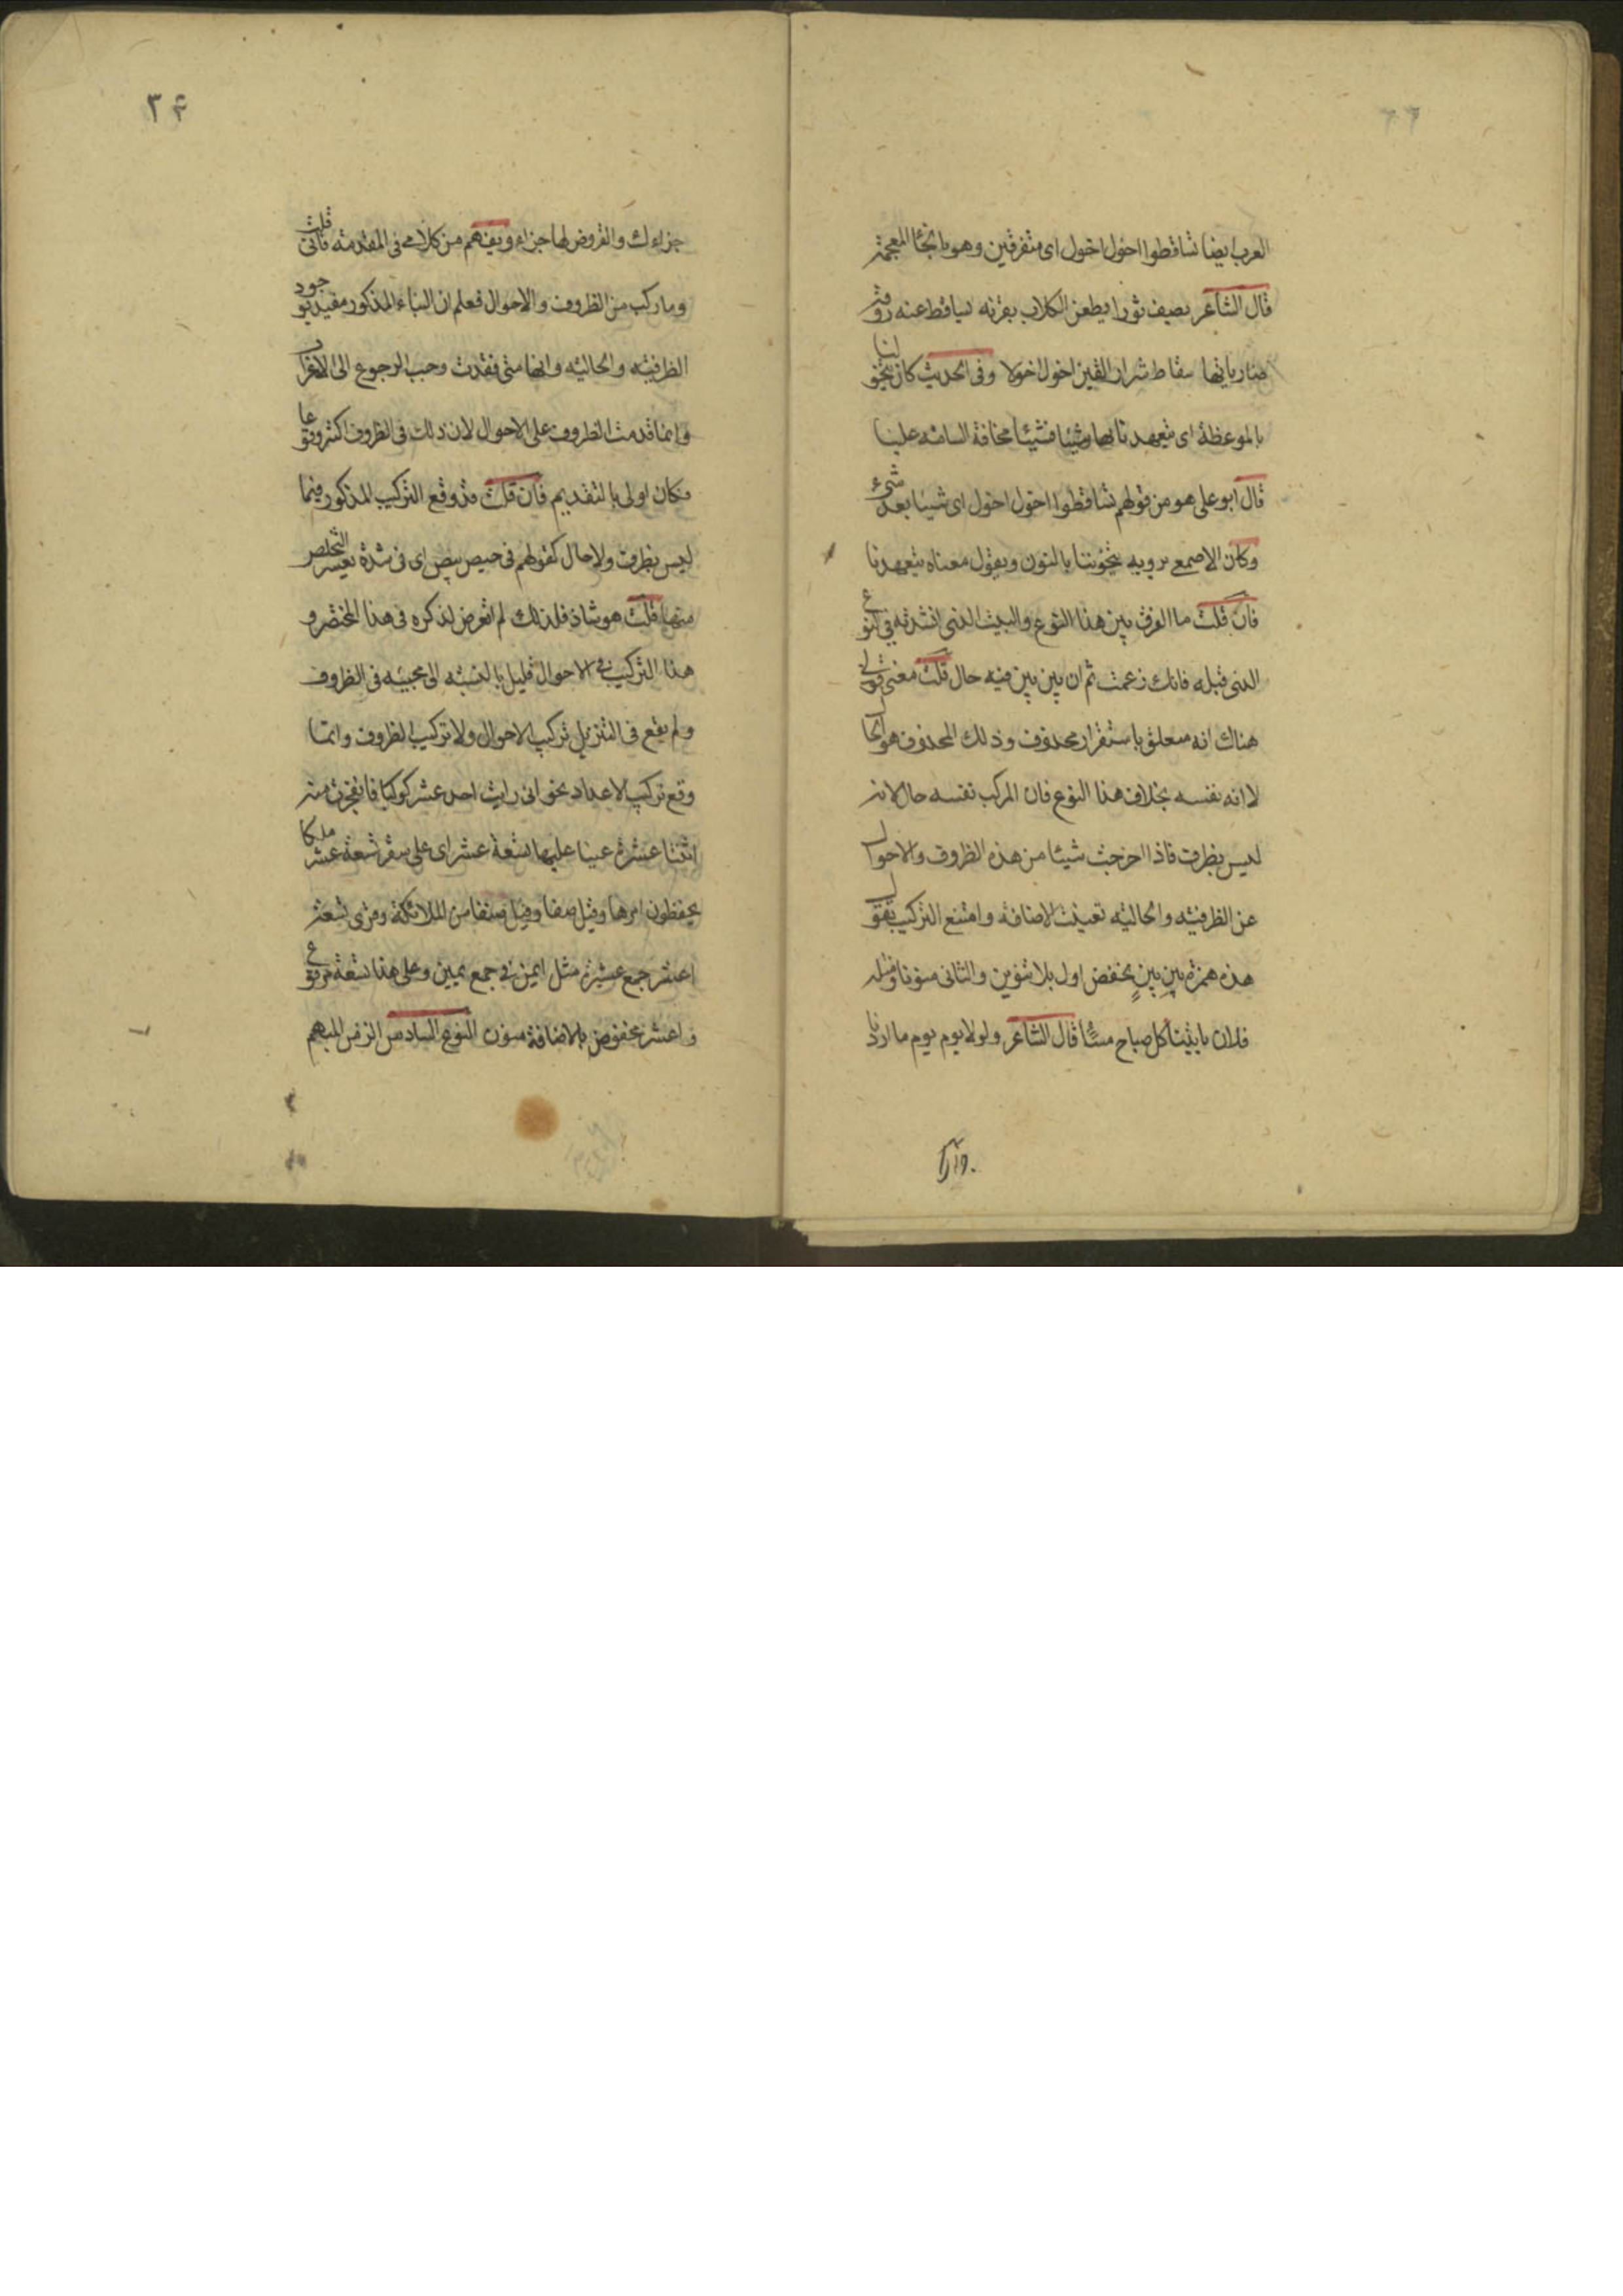 العرب ايضا تساقطوا اخول اخول اى متفرقين وهو بالخاء المعجمة
قال الشاعر يصف ثورا يطعن الكلاب بقرنه يساقط عنه روقه
ضارياتها سقاط شرار القين اخول اخولا وفى الحديث كان يتخولنا
بالموعظة اى يتعهدنا بها شيئا فشيئا مخافة السامة علينا
قال ابو على هو من قولهم تساقطوا اخول اخول اى شيئا بعد شىء
وكان الاصمعى يرويه يتخوننا بالنون ويقول معناه يتعهدنا
فان قلت ما الفرق بين هذا النوع والبيت الذى انشدته فى النوع
الذى قبله فانك زعمت ثم ان بين بين فيه حال قلت معنى قولى
هناك انه متعلق باستقرار محذوف وذلك المحذوف هو الحال
لا انه نفسه بخلاف هذا النوع فان المركب نفسه حال لانه
ليس بظرف فاذا اخرجت شيئا من هذه الظروف والاحوال
عن الظرفية والحالية تعينت الاضافة وامتنع التركيب تقول
هذه همزة بين بينٍ بخفض اول بلا تنوين والثانى منونا ومثله
فلان ياتينا كل صباح مساءً قال الشاعر ولولا يوم يوم ما اردنا
جزاءك
٣۴
جزاءك والقروض لها جزاء ويفهم من كلامى فى المقدمة فانى قلت
وما ركب من الظروف والاحوال فعلم ان البناء المذكور مقيد بوجود
الظرفية والحالية وانها متى فقدت وجب الرجوع الى الاعراب
وانما قدمت الظروف على الاحوال لان ذلك فى الظروف اكثر وقوعا
فكان اولى بالتقديم فان قلت قد وقع التركيب المذكور فيما
ليس بظرف ولا حال كقولهم فى حيص بيص اى فى شدة يعسر التخلص
منها قلت هو شاذ فلذلك لم اتعرض لذكره فى هذا المختصر و
هذا التركيب فى الاحوال قليل بالنسبه الى مجيئه فى الظروف
ولم يقع فى التنزيل تركيب الاحوال ولا تركيب الظروف وانما
وقع تركيب الاعداد نحو انى رايت احد عشر كوكبا فانفجرت منه
اثنتا عشرة عينا عليها تسعة عشر اى على سقر تسعة عشر ملكا
يحفظون امرها وقيل صفا وقيل صنفا من الملائكة وقرى تسعة
اعشر جمع عشير مثل ايمن فى جمع يمين وعلى هذا تسعة مرفوع
واعشر مخفوض بالاضافة منون النوع السادس الزمن المبهم